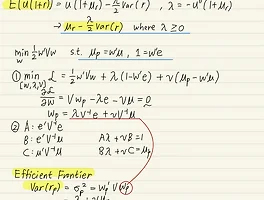 E(u(1+r)) = u(1+μr) - λ/2 Var(r) , λ = -u''(1+μr)
→ μr - λ/2 Var(r) where λ ≥ 0
min w ½w'Vw s.t. μp = w'μ , 1 = w'e
① min {w,λ,ν} L = ½w'Vw + λ(1-w'e) + ν(μp - w'μ)
∂L/∂w = Vwp - λe - νμ = 0
wp = λV⁻¹e + νV⁻¹μ
② A: e'V⁻¹e
B: e'V⁻¹μ Aλ + νB = 1
C: μ'V⁻¹μ Bλ + νC = μp
Efficient Frontier
Var(rp) = σp² = wp'V wp